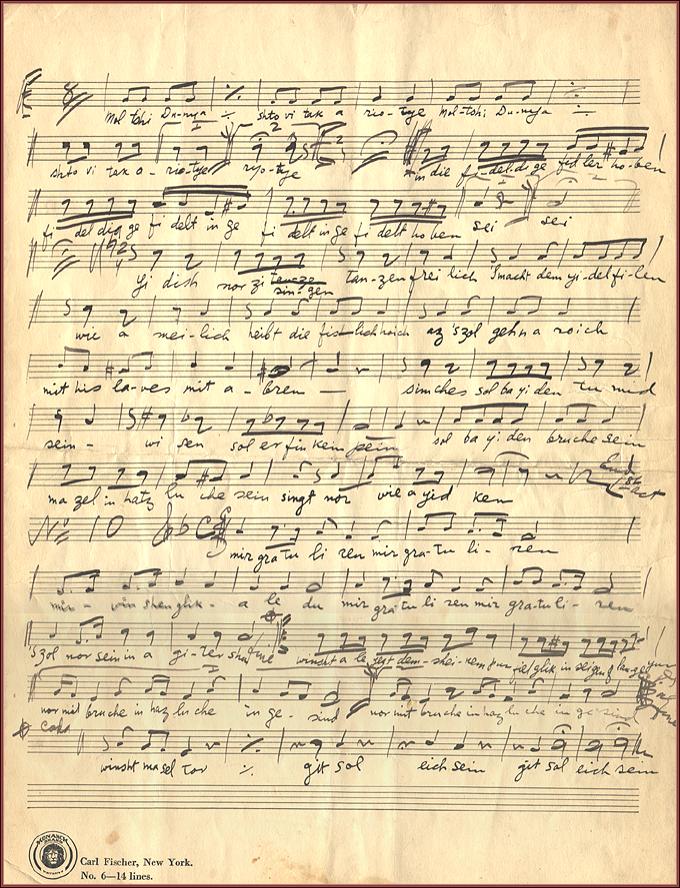 Mol-tshi Du-nya shto vi tak a rio-tye Mol-tshi Du-nya
shto vi tak o-rio-tye ryo-tye in die fi-del-di ge fid-ler ho-ben
fi del dig ge fi delt in ge fi delt in ge fi delt ho ben sei sei
Yi dish nor zi tan-ze tan-zen frei lich S'macht dem yi-del fi-len
sin-gen
wie a mei-lich heibt die fis-lich hoich az 'szol gehn a roich
mit his la-ves mit a-bren simches sol ba yi den tu mid
sein- wi sen sol er fin kein pein sol ba yi den bruche sein
ma zel in hatz lu che sein singt nor vie a yid ken
No 10
mir gra tu li ren mir gra-tu li-ren
mir- win shen glik-a le du mir gra tu li ren mir gra tu li-ren
'szol nor sein in a gi-ter sha winsht a le fest dem-shei-nem pur viel glik in
nor mit bruche in haz lu che in ge-sind nor mit bruche in haz lu che in ge sind
Coda
winsht masel tov git sol eich sein git sol eich sein
Carl Fischer, New York.
No. 6—14 lines.